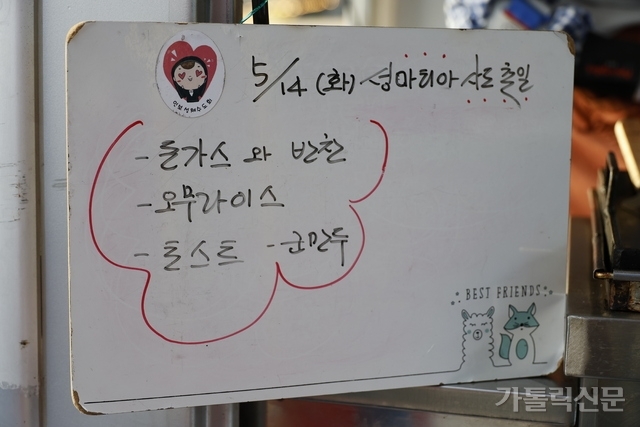 5/14 (화) 성마티아 사도 축일
- 돈가스 와 반찬
- 오무라이스
- 토스트 - 군만두
BEST FRIENDS
가톨릭신문